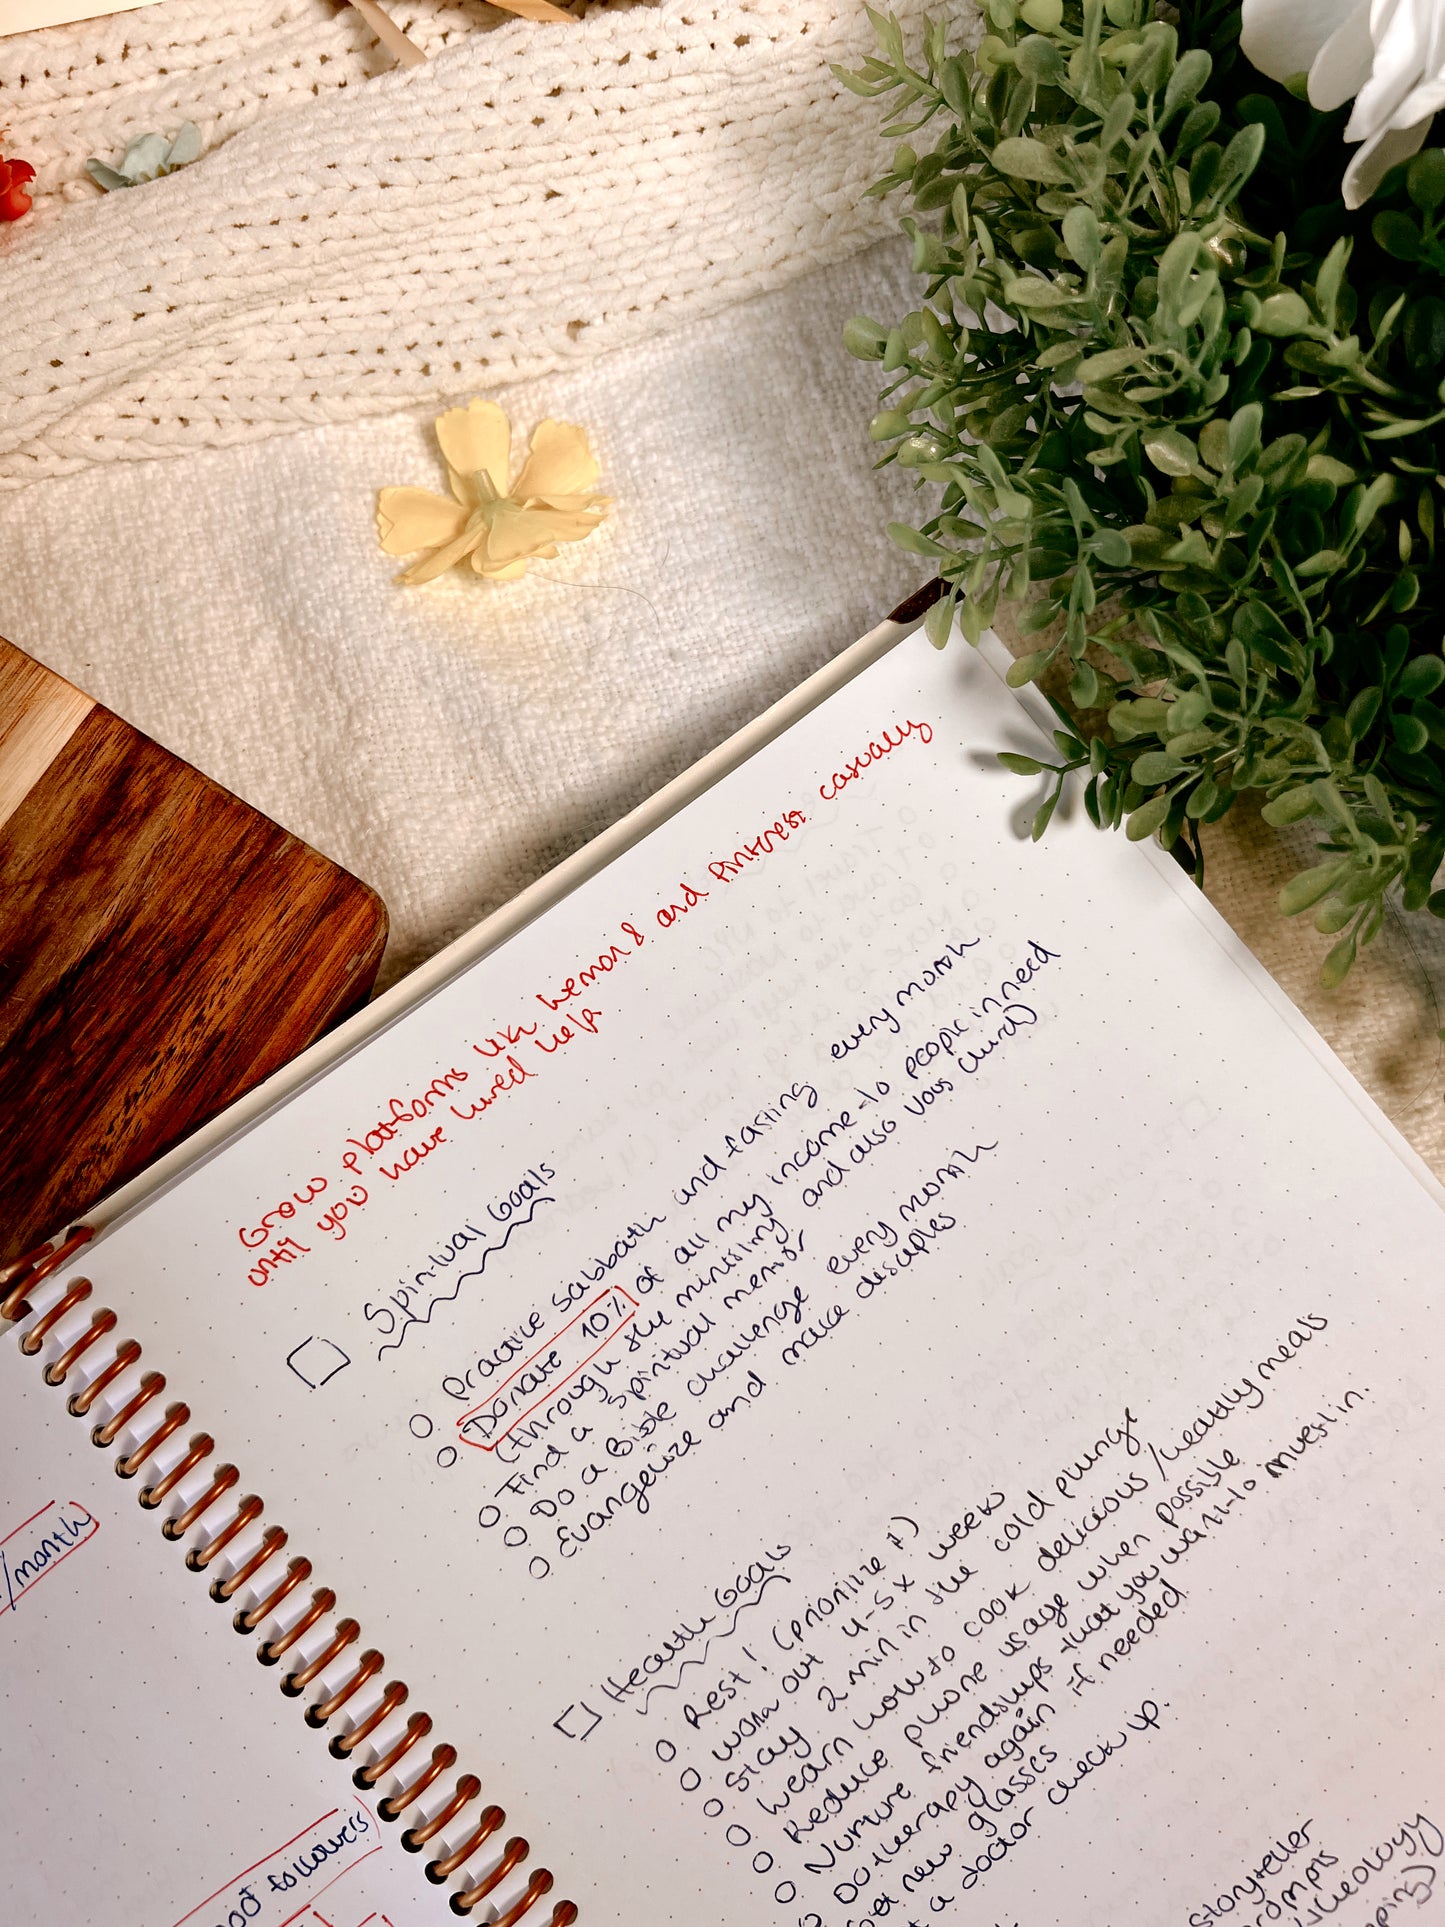 Grow platforms like Lemon8 and Pinterest casually
until you have hired help
Spiritual Goals
Practice sabbath and fasting every month
Donate 10% of all my income to people in need
(through the ministry and also Vous Church)
Find a spiritual mentor
Do a Bible challenge every month
Evangelize and make disciples
Health Goals
Rest! (prioritize it)
Work out 4-5x weeks
Stay 2 min in the cold plunge
Learn how to cook delicious/healthy meals
Reduce phone usage when possible
Nurture friendships that you want to invest in.
Do therapy again if needed
Get new glasses
a doctor check up.
/month
followers
storyteller